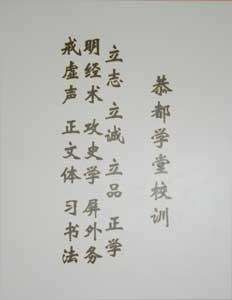 恭都学堂校训
立志 立诚 立品 正学
明经术 攻史学 屏外务
戒虚声 正文体 习书法